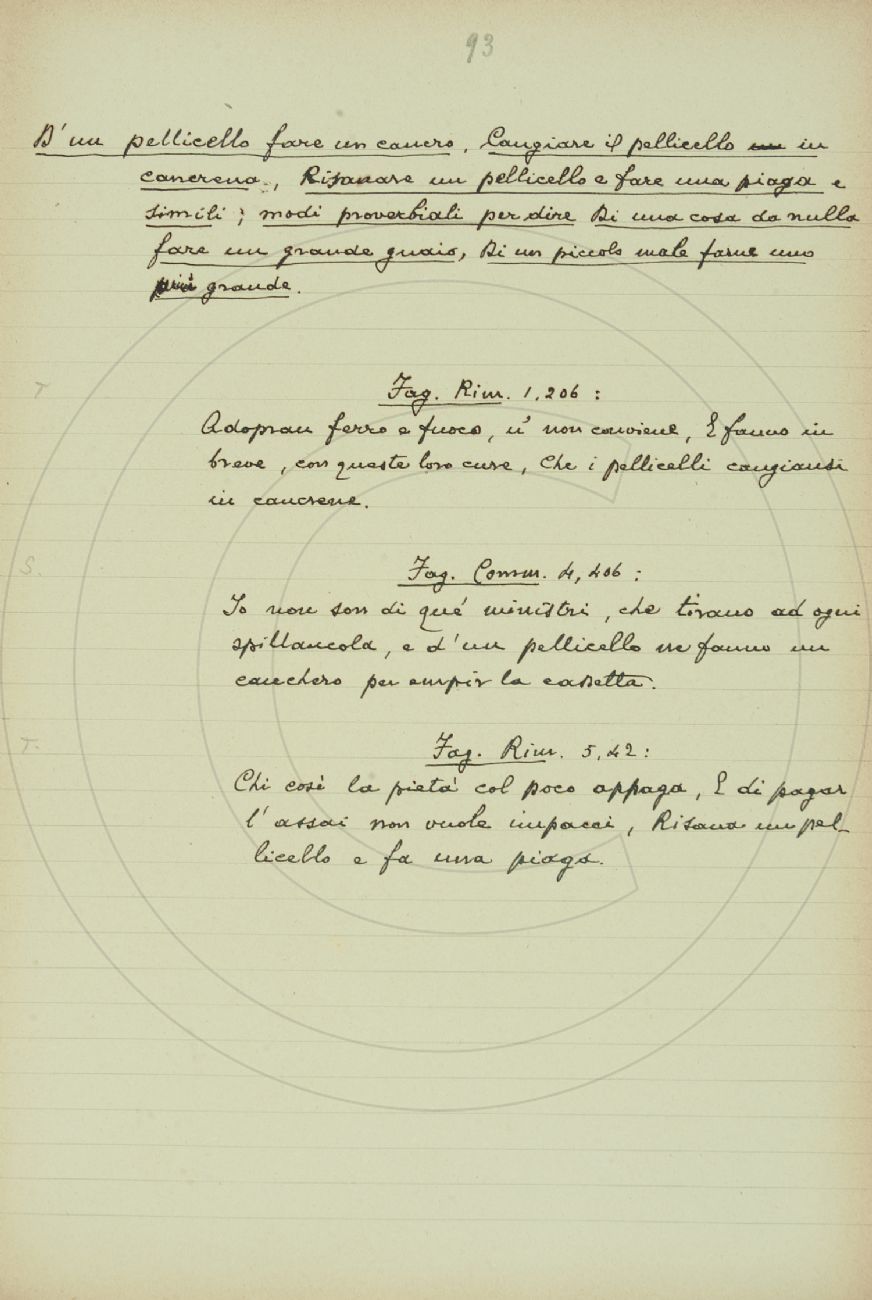 93
D'un pellicello fare un cancro, Cangiare il pellicello in
cancrena, Risanare un pellicello e fare una piaga e
simili; modi proverbiali per dire Di una cosa da nulla
fare un grande guaio, Di un piccolo male farne uno
più grande.
T
Fag. Rim. 1,206:
Adopran ferro e fuoco, u' non conviene, E fanno in
breve, con queste loro cure, Che i pellicelli cangiansi
in cancrene.
S.
Fag. Comm. 4,406:
Io non son di que' ministri, che tirano ad ogni
spillancola, e d'un pellicello ne fanno un
canchero per empir la cassetta.
T.
Fag. Rim. 5,42:
Chi così la pietà col poco appaga, E di pagar
l'assai non vuole impacci, Risana un pel-
licello e fa una piaga.